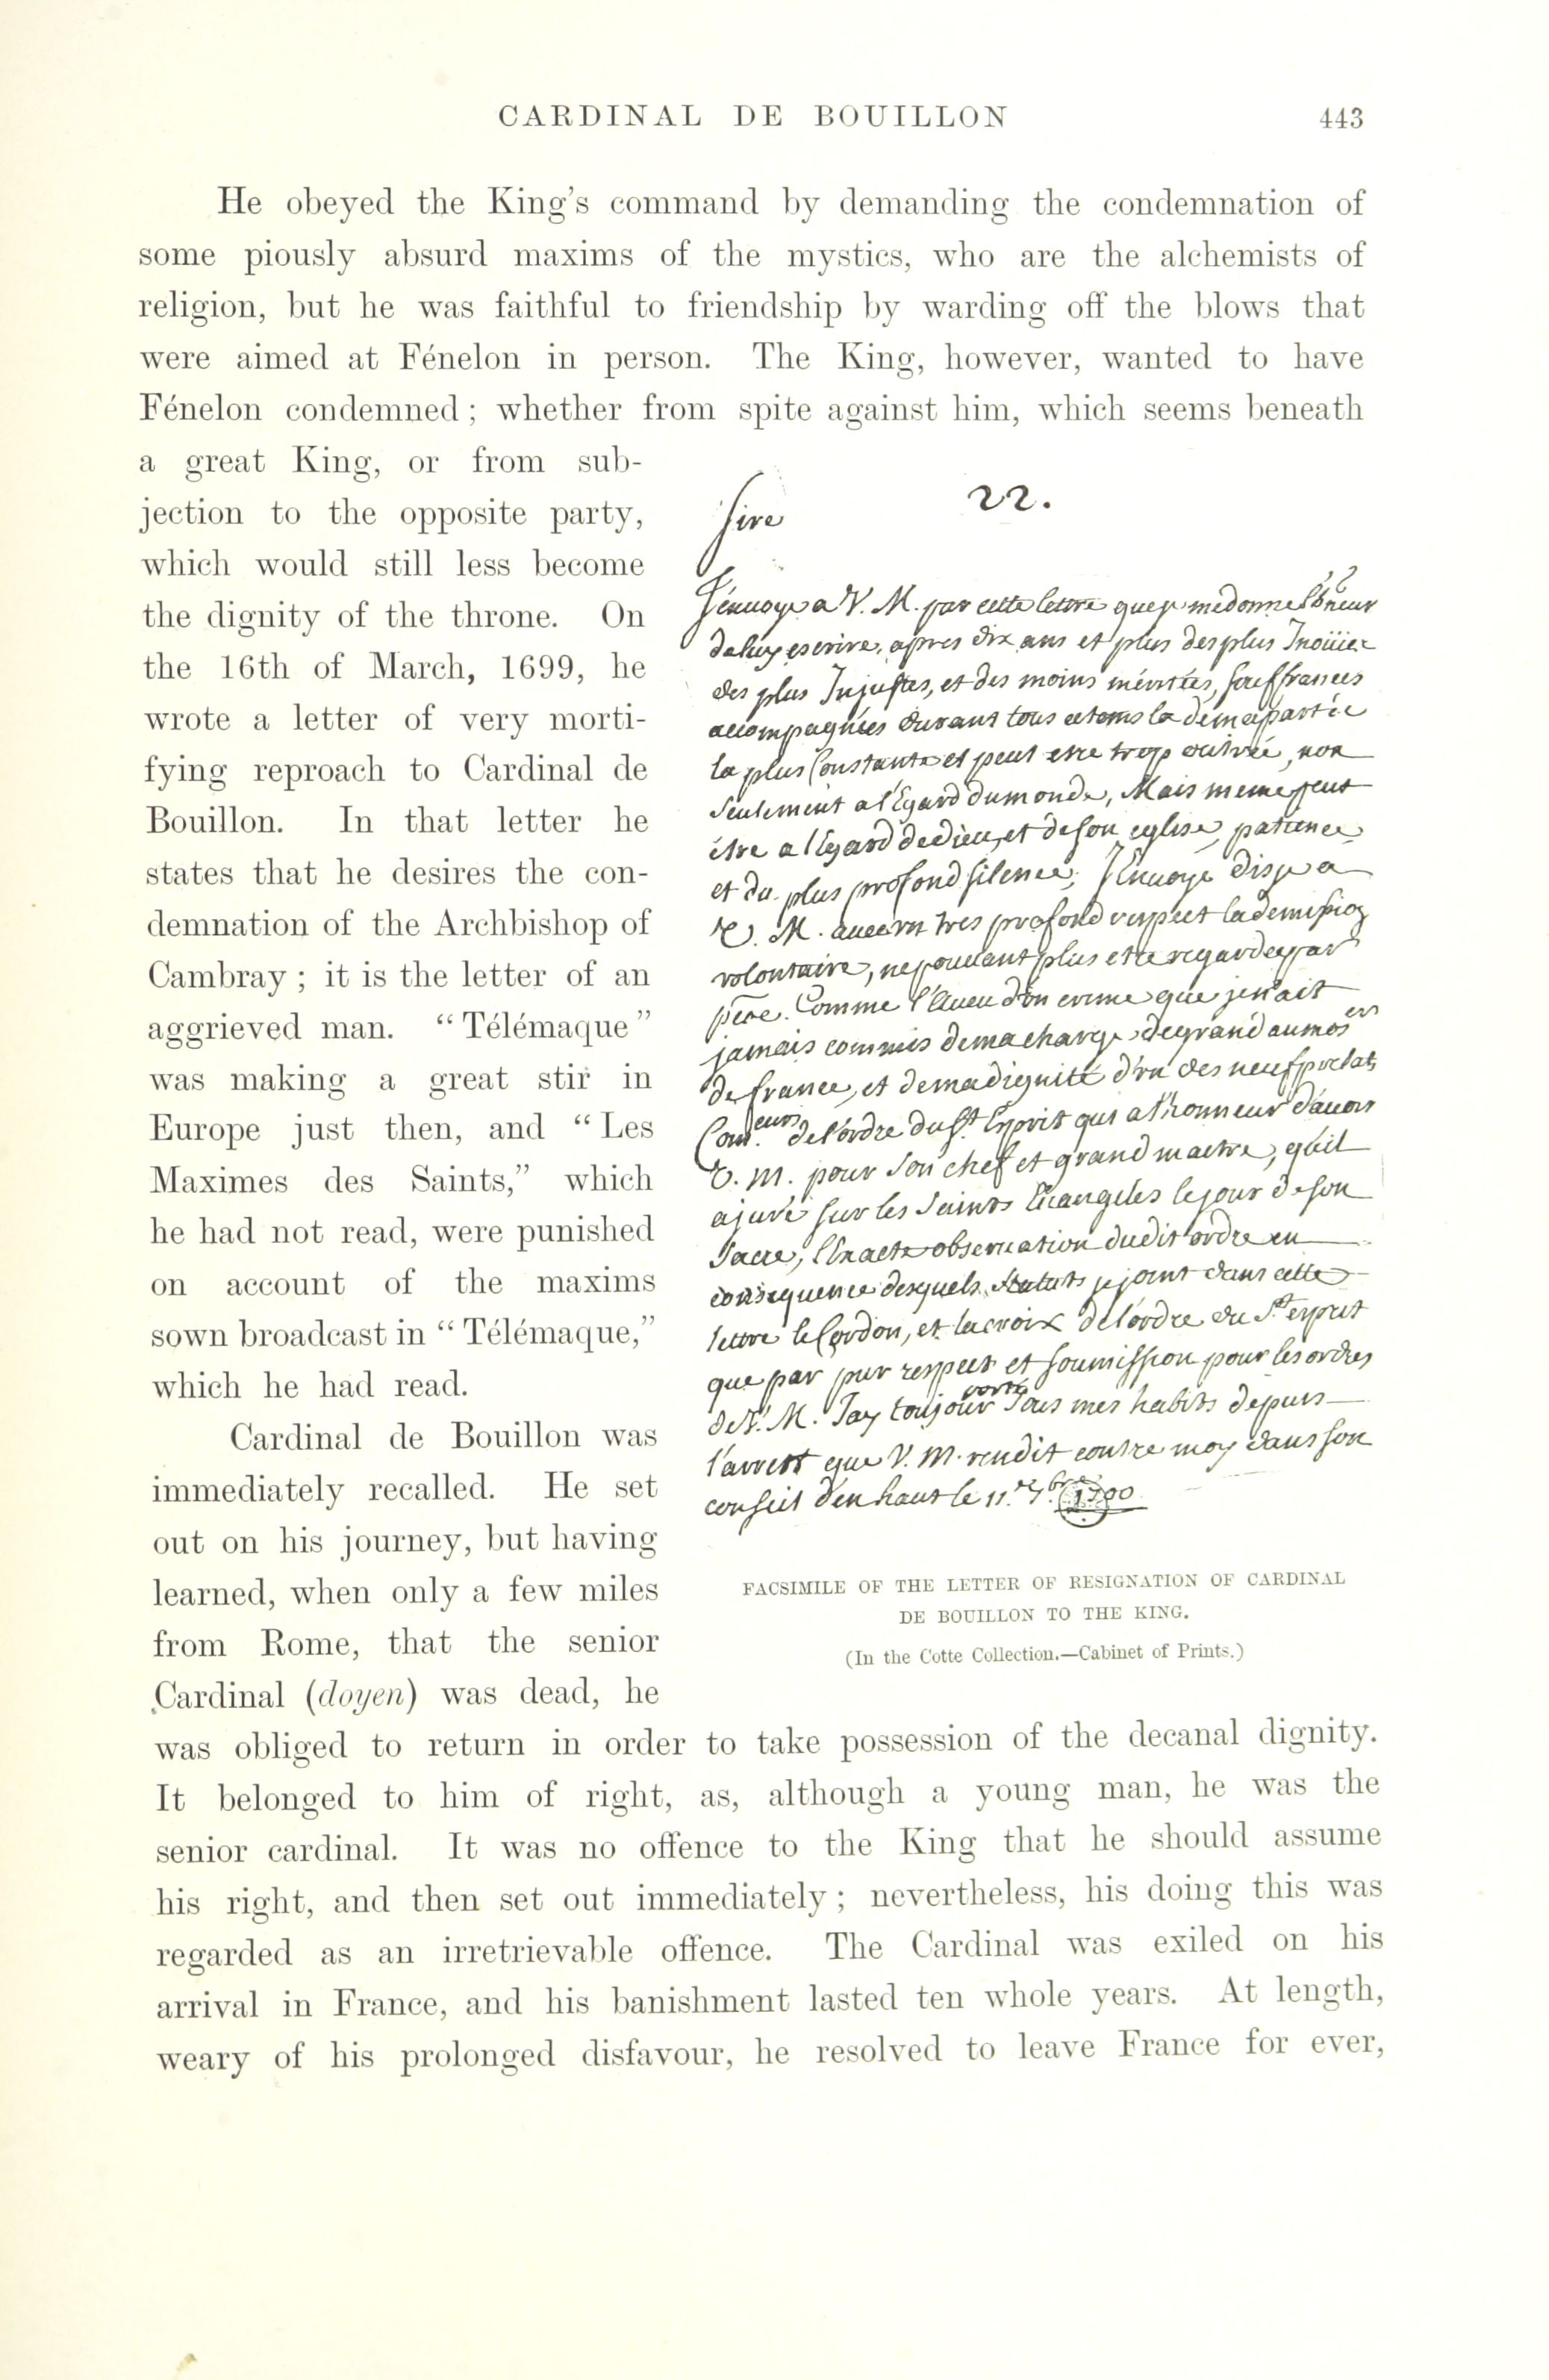 CARDINAL DE BOUILLON 443
He obeyed the King's command by demanding the condemnation of
some piously absurd maxims of the mystics, who are the alchemists of
religion, but he was faithful to friendship by warding off the blows that
were aimed at Fénelon in person. The King, however, wanted to have
Fénelon condemned ; whether from spite against him, which seems beneath
a great King, or from sub-
jection to the opposite party,
which would still less become
the dignity of the throne. On
the 16th of March, 1699, he
wrote a letter of very morti-
fying reproach to Cardinal de
Bouillon. In that letter he
states that he desires the con-
demnation of the Archbishop of
Cambray ; it is the letter of an
aggrieved man. “ Télémaque ”
was making a great stir in
Europe just then, and “ Les
Maximes des Saints,” which
he had not read, were punished
on account of the maxims
sown broadcast in “ Télémaque,”
which he had read.
Cardinal de Bouillon was
immediately recalled. He set
out on his journey, but having
learned, when only a few miles
from Rome, that the senior
Cardinal (doyen) was dead, he
22.
Sire
J'enuoye a V. M. par cette lettre que je me donne l'honeur
de luy escrire, apres dix ans et plus des plus Inoüies
des plus Injustes, et des moins méritées, souffrances
accompagnées durant tous ce tems la de ma part de
la plus Constante et peut estre trop outrée, non
seulement a l'Egard du monde, Mais meme peut
étre a l'Egard de dieu, et de son eglise, patience,
et du plus profond silence, J'Enuoye disje a
V. M. auec un tres profond respect la demission
volontaire, ne pouuant plus etre regardée par
Comme l'Aueu d'un crime que je n'ait
jamais commis de ma charge de grand aumos er
de france, et de ma dignité d'un des neuf prelats
Com.eurs de l'ordre du St. Esprit qui a l'honneur d'auoir
V. M. pour son chef et grand maitre, qui
a juré sur les saints Euangiles le jour de son
Sacre, l'Exacte obseruation dudit ordre en
consequence desquels statuts je joint dans cette
lettre le Cordon, et la croix de l'ordre du St. esprit
que par pur respect et soumission pour les ordres
de V. M. Jay toujour porté sous mes habits depuis
l'arrest que V. M. rendit contre moy dans son
conseil d'en haut le 11.e 7.bre 1700
FACSIMILE OF THE LETTER OF RESIGNATION OF CARDINAL
DE BOUILLON TO THE KING.
(In the Cotte Collection.—Cabinet of Prints.)
was obliged to return in order to take possession of the decanal dignity.
It belonged to him of right, as, although a young man, he was the
senior cardinal. It was no offence to the King that he should assume
his right, and then set out immediately ; nevertheless, his doing this was
regarded as an irretrievable offence. The Cardinal was exiled on his
arrival in France, and his banishment lasted ten whole years. At length,
weary of his prolonged disfavour, he resolved to leave France for ever,